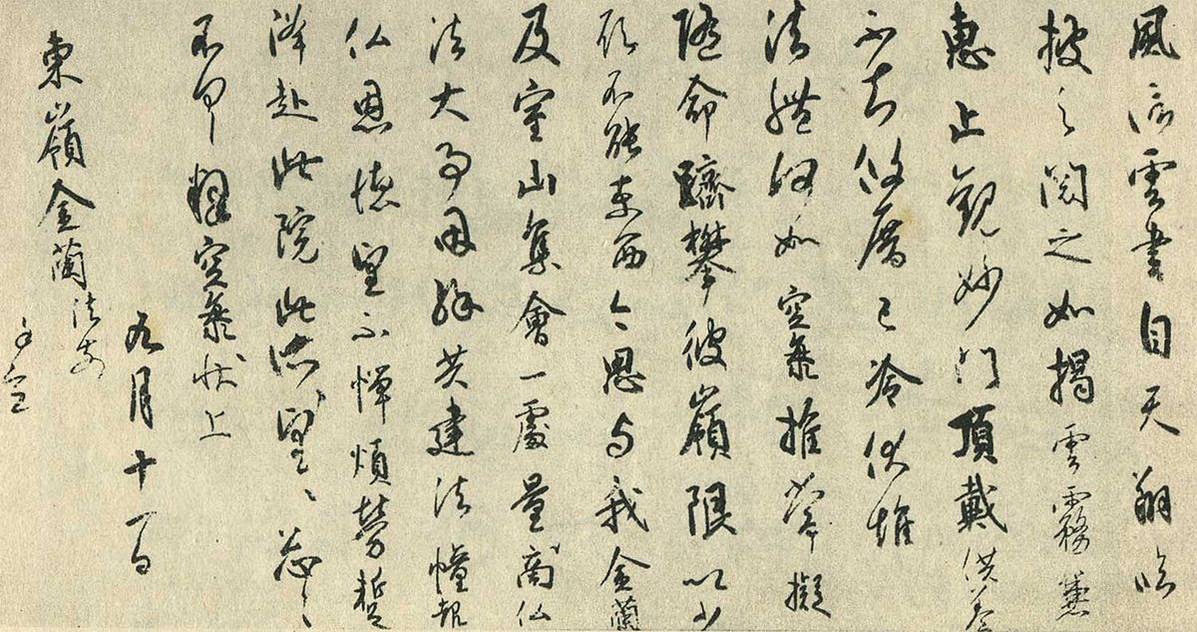 風信雲書自天翔臨
披之閲之如揭雲霧兼
惠止觀妙門頂戴供養
不知攸厝已冷伏惟
法體何如空海推常擬
隨命躋攀彼嶺限以少
願不能東西今思与我金蘭
及室山集會一處量商仏
法大事因縁共建法幢報
仏恩徳望不憚煩勞蹔
降赴此院此所望〻忩〻
不具釋空海状上
九月十一日
東嶺金蘭法前
謹空